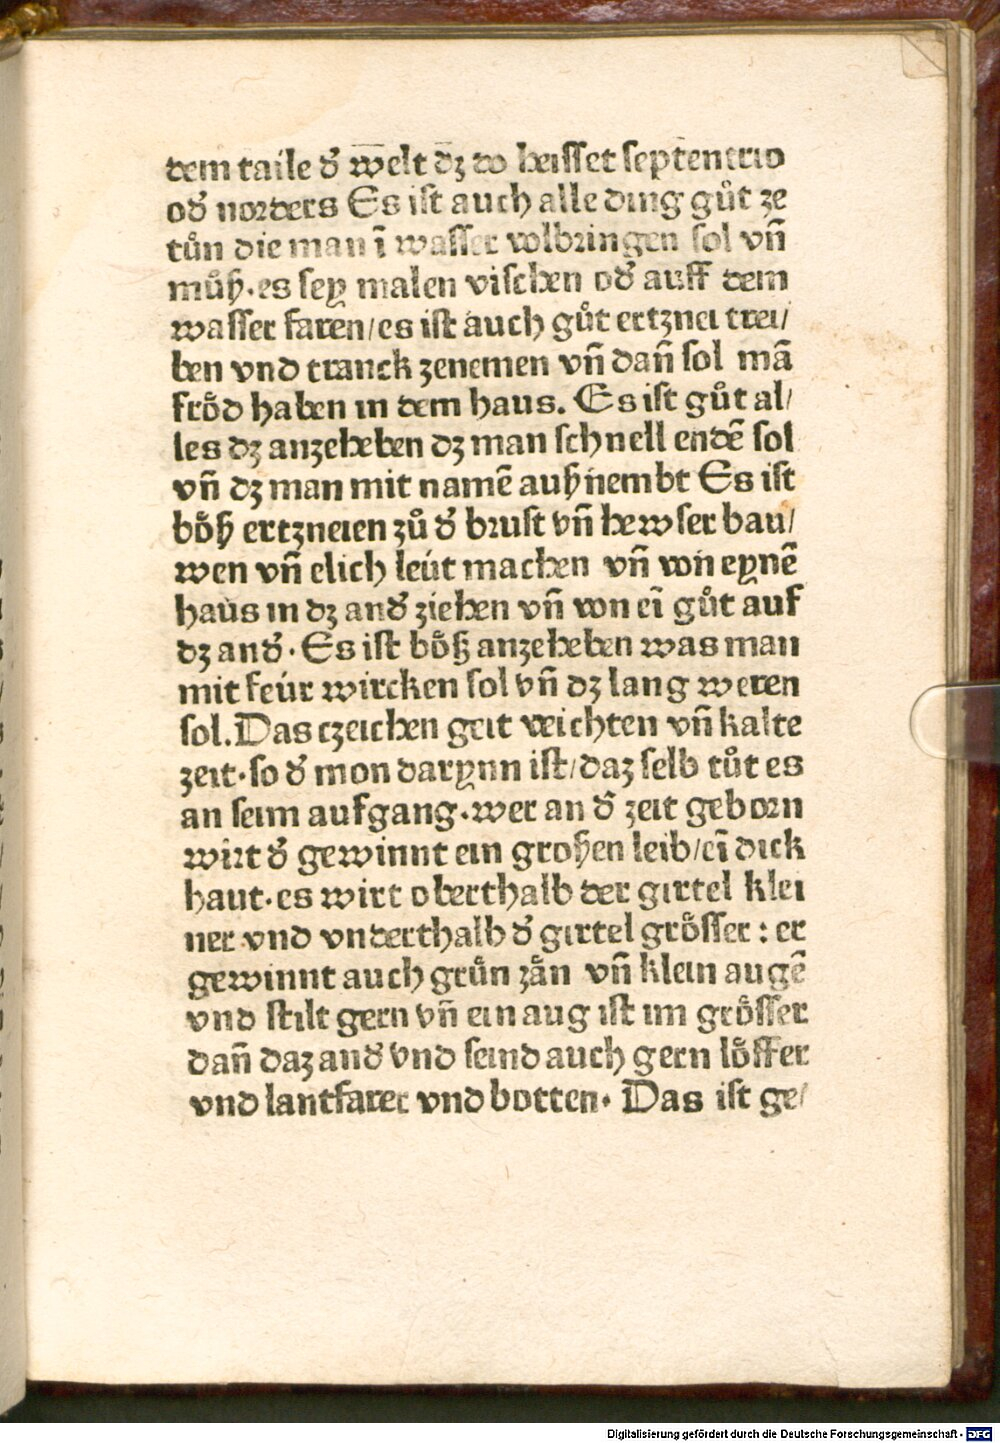 dem taile dˀ welt dz do heisset septentrio
odˀ norders Es ist auch alle ding gůt ze
tůn die man ī wasser volbꝛingen sol vn̄
můß·es sey malen vischen odˀ auff dem
wasser faren/es ist auch gůt ertznei trei/
ben vnd tranck zenemen vn̄ dan̄ sol mā
frȫd haben in dem haus. Es ist gůt al/
les dz anzeheben dz man schnell endē sol
vn̄ dz man mit namē aufnembt Es ist
bȫß ertzneien zů dˀ bꝛust vn̄ hewser bau/
wen vn̄ elich leüt machen vn̄ von eynē
haus in dz andˀ ziehen vn̄ von eī gůt auf
dz andˀ· Es ist bȫß anzeheben was man
mit feür wircken sol vn̄ dz lang weren
sol. Das czeichen geit veichten vn̄ kalte
zeit·so dˀ mon darynn ist/daz selb tůt es
an seim aufgang·wer an dˀ zeit geboꝛn
wirt dˀ gewinnt ein großen leib/eī dick
haut·es wirt oberthalb der girtel klei
ner·vnd vnderthalb dˀ girtel grȫsser : er
gewinnt auch grün zän vn̄ klein augē
vnd stilt gern vn̄ ein aug ist im grȫsser
dan̄ daz andˀ vnd seind auch gern lȫffer
vnd lantfarer vnd botten· Das ist ge/
Digitalisierung gefördert durch die Deutsche Forschungsgemeinschaft · DFG